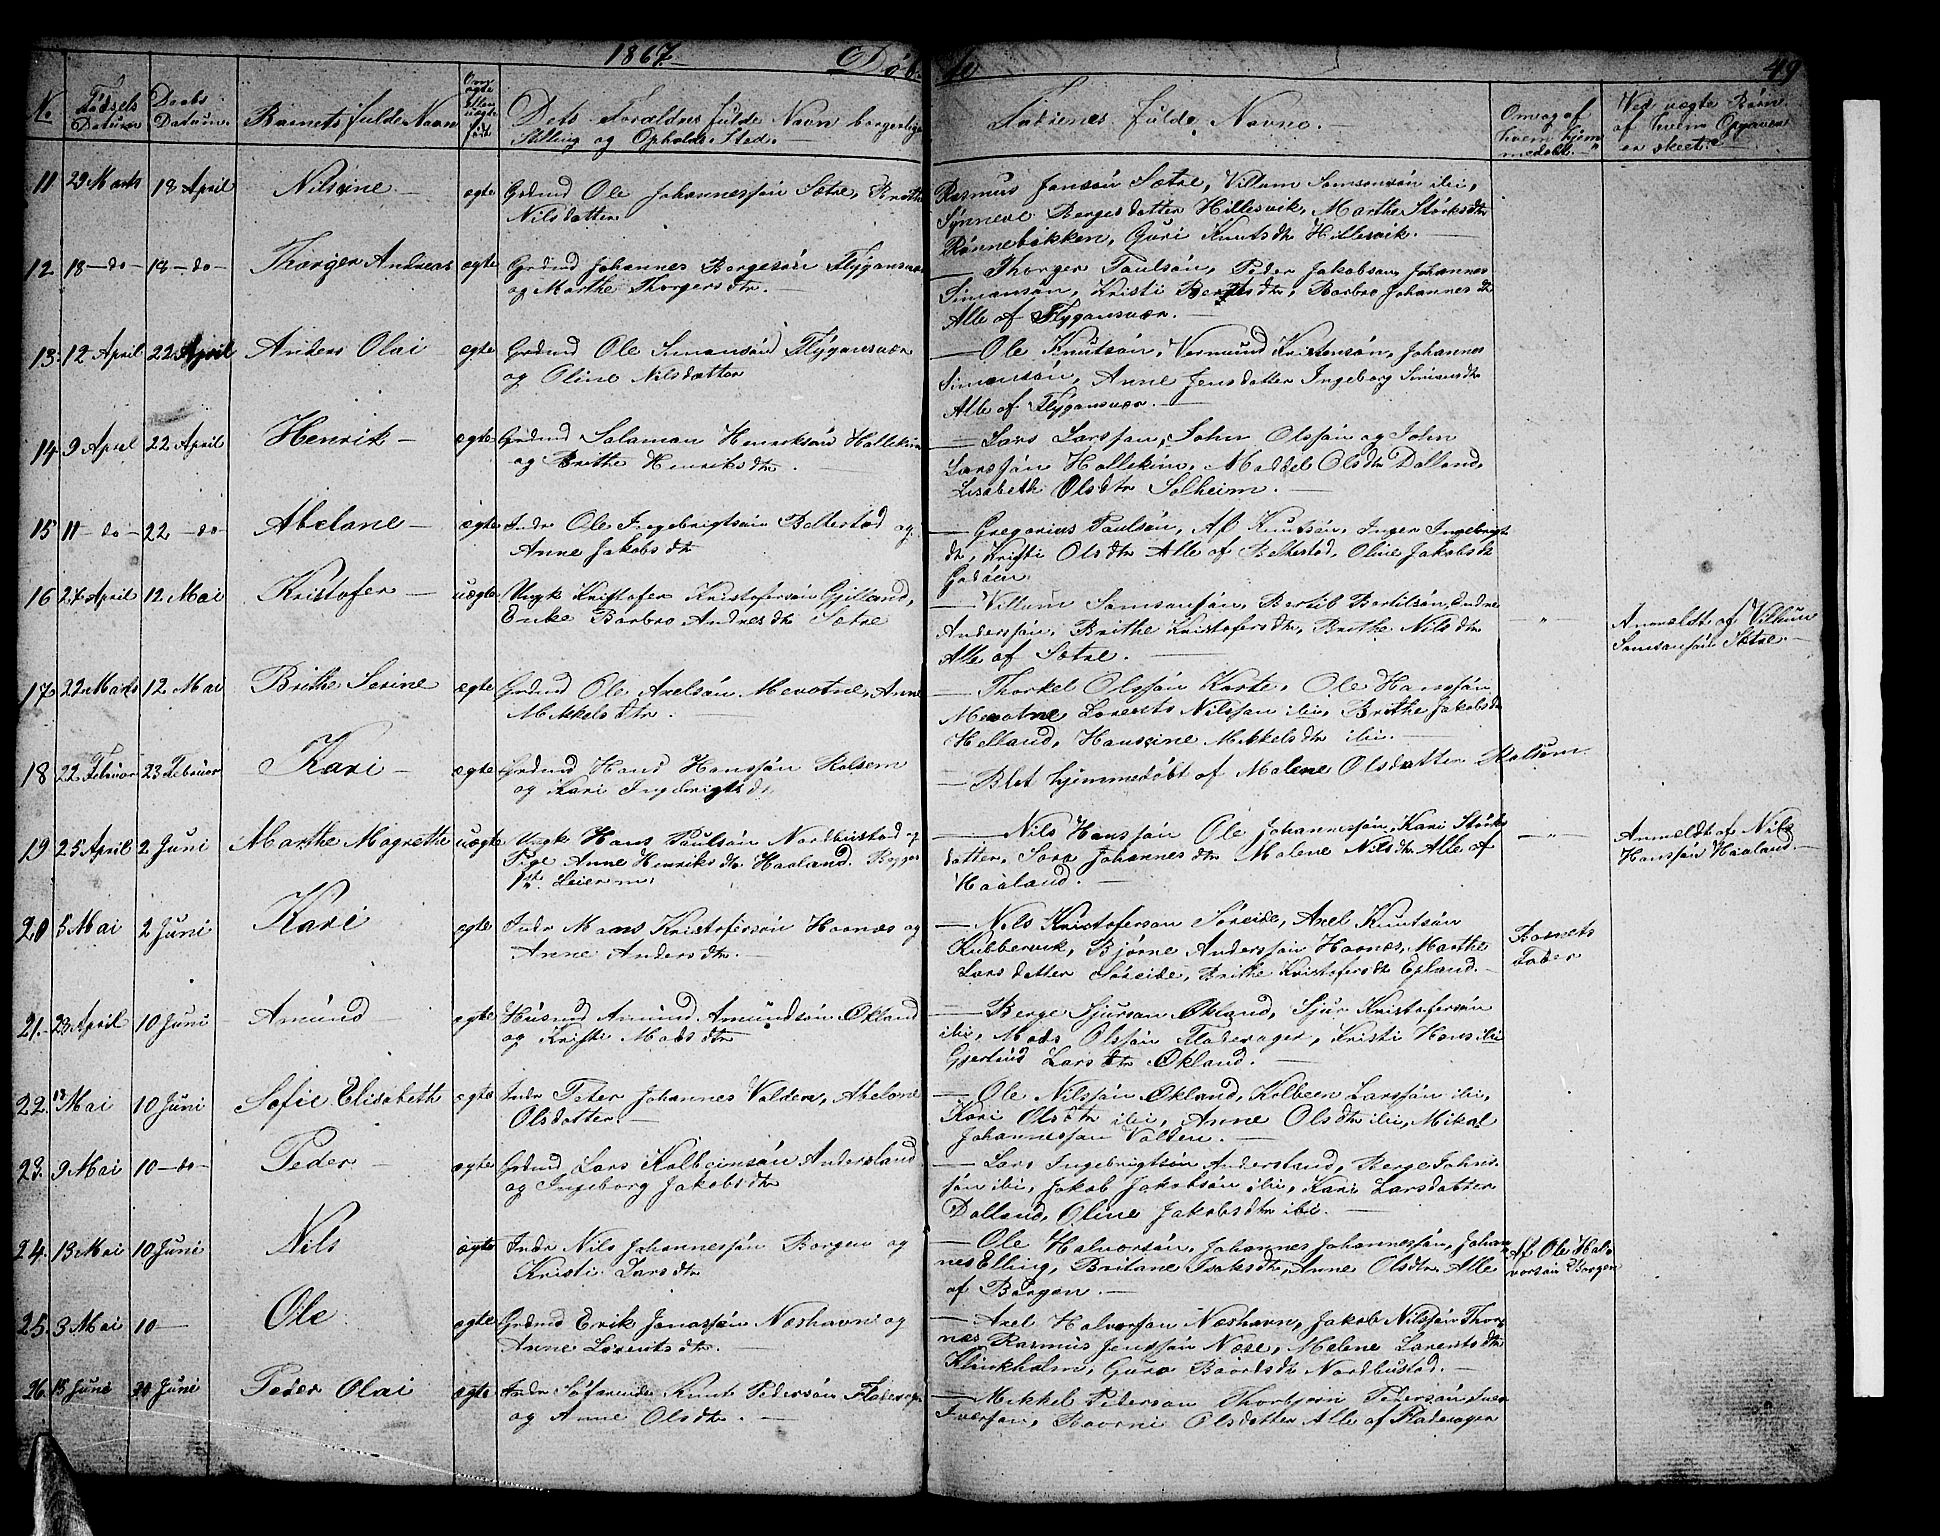 1867. Døbte 49
No. Fødsels Datum Daabs Datum. Barnets fulde Navn Om ægte Eller uægte født Dets Forældres fulde Navn borgerlige Stilling og Opholds Sted. Faderenes fulde Navne. Om og af hvem hjemmedøbt. Ved uægte Børn af hvem Opgaven er skeet.
11 29 Marts 18 April Nilsine ægte Grdmd Ole Johannessøn Sætre, Brithe
Nilsdatter
Rasmus Jansøn Sætre, Villum Samsonsøn ibi,
Synneve Bergesdatter Hillesvik, Marthe Størksdtr
Rønnebikken, Guri Knutsdtr Hillesvik.
12 18 do 18 do Thorger Andreas ægte Grdmd Johannes Borgesøn Flygansvær
og Marthe Thorgersdtr.
Thorger Paulsøn, Peder Jakobsøn, Johannes
Simonsøn, Kristi Bergesdtr, Barbro Johannesdtr
Alle af Flygansvær.
13 12 April 22 April Anders Olai ægte Grdmd Ole Simonsøn Flygansvær
og Oline Nilsdatter
Ole Knutsøn, Vermund Kristensøn, Johannes
Simonsøn, Anne Jensdatter Ingeborg Simonsdtr
Alle af Flygansvær.
14 9 April 22 April Henrik ægte Grdmd Salamon Henriksøn Hallekim
og Brithe Henriksdtr.
Lars Larssøn, John Olssøn og John
Larssøn Hallekim, Maddel Olsdtr Dalland,
Lisabeth Olsdtr Solheim.
15 11 do 22 do Abelone ægte Indr Ole Ingebrigtsøn Beltestad og
Anne Jakobsdtr
Gregorius Paulsøn, Knutsøn, Inger Ingebrigt
dtr, Kristi Olsdtr Alle af Beltestad, Oline Jakobsdtr
16 27 April 12 Mai Kristofer uægte Ungk Kristofer Kristofersøn Gjilland,
Enke Barbro Andresdtr Sætre
Villum Samsonsøn, Bertil Bertilsøn, Endre
Anderssøn, Brithe Kristofersdtr, Brithe Nilsdtr
Alle af Sætre.
Anmeldt af Vilhum
Samsonsøn Sætre.
17 22 Marts 12 Mai Brithe Serine ægte Grdmd Ole Axelsøn Mevatne, Anne
Mikkelsdtr.
Thorkel Olssøn Korte, Ole Hanssøn
Mevatne, Lorents Nilssøn ibi, Brithe Jakobsdtr
Helland, Hansine Mikkelsdtr ibi.
18 22 Februar 23 Februar Kari ægte Grdmd Hans Hanssøn Rolsem
og Kari Ingebrigtsdtr
Blet hjemmedøbt af Malene Olsdatter
19 25 April 2 Juni Marthe Magrethe uægte Ungk Hans Paulsøn Nordbustad og
Pige Anne Henriksdtr Haaland. Begges
1ste Leierm.
Nils Hanssøn, Ole Johannessøn, Kari Størks
datter, Sara Johannesdtr Malene Nilsdtr Alle af
Haaland.
Anmeldt af Nils
Hanssøn Haaland.
20 5 Mai 2 Juni Kari ægte Indr Mons Kristofersøn Hovnæs og
Anne Andersdtr.
Nils Kristofersøn Søreide, Axel Knutsøn
Kubbervik, Bjørne Anderssøn Hovnæs, Marthe
Larsdatter Søreide, Brithe Kristofersdtr Epland.
Barnets
Fader
21. 23 April 10 Juni Amund ægte Husmd Amund Amundsøn Økland
og Kristi Madsdtr
Berge Sjursøn Økland, Sjur Kristofersøn
ibi, Mads Olssøn Fladevager, Kristi Hans ibi
Gjertrud Larsdtr Økland.
22. 17 Mai 10 Juni Sofie Elisabeth ægte Indr Peter Johannes Valden, Abelone
Olsdatter.
Ole Nilssøn Økland, Kolbeen Larssøn ibi,
Kari Olsdtr ibi, Anne Olsdtr ibi, Mikal
Johannessøn Valden.
23. 9 Mai 10 do Peder ægte Grdmd Lars Kolbeinsøn Andersland
og Ingeborg Jakobsdtr
Lars Ingebrigtsøn Andersland, Berge Johns
søn ibi, Jakob Jakobsøn ibi, Kari Larsdatter
Dalland, Oline Jakobsdtr ibi.
24. 13 Mai 10 Juni Nils ægte Indr Nils Johannessøn Borgen og
Kristi Larsdtr
Ole Halvorsøn, Johannes Johannessøn, Johan
nes Elling, Britane Isaksdtr, Anne Olsdtr Alle
af Borgen.
Af Ole Hal
vorsøn Borgen
25. 3 Mai 10 Ole ægte Grdmd Erik Jonassøn Næshavn og
Anne Lorentsdtr.
Axel Halvorsøn Næshavn, Jakob Nilssøn Thor
næs Rasmus Jenssøn Næse, Malene Lorentsdtr
Klinkholm, Guro Baardsdtr Nordbustad.
26. 15 Juni 20 Juni Peder Olai ægte Indr Søfarende Knut Pedersøn Fladevager
og Anne Olsdtr.
Mikkel Pedersøn Thorbjørn Pedersøn, Iver
Iversøn, Baarni Olsdatter Alle af Fladevager